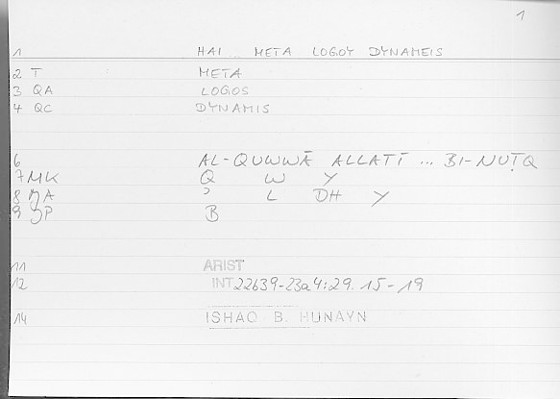 1
1 HAI META LOGOY DYNAMEIS
2 T META
3 QA LOGOS
4 QC DYNAMIS
6 AL-QUWWĀ ALLATĪ ... BI-NUṬQ
7 MK Q W Y
8 MA ʾ L DH Y
9 JP B
11 ARIST
12 INT 22b39-23a4:29.15-19
14 ISHAQ B. HUNAYN